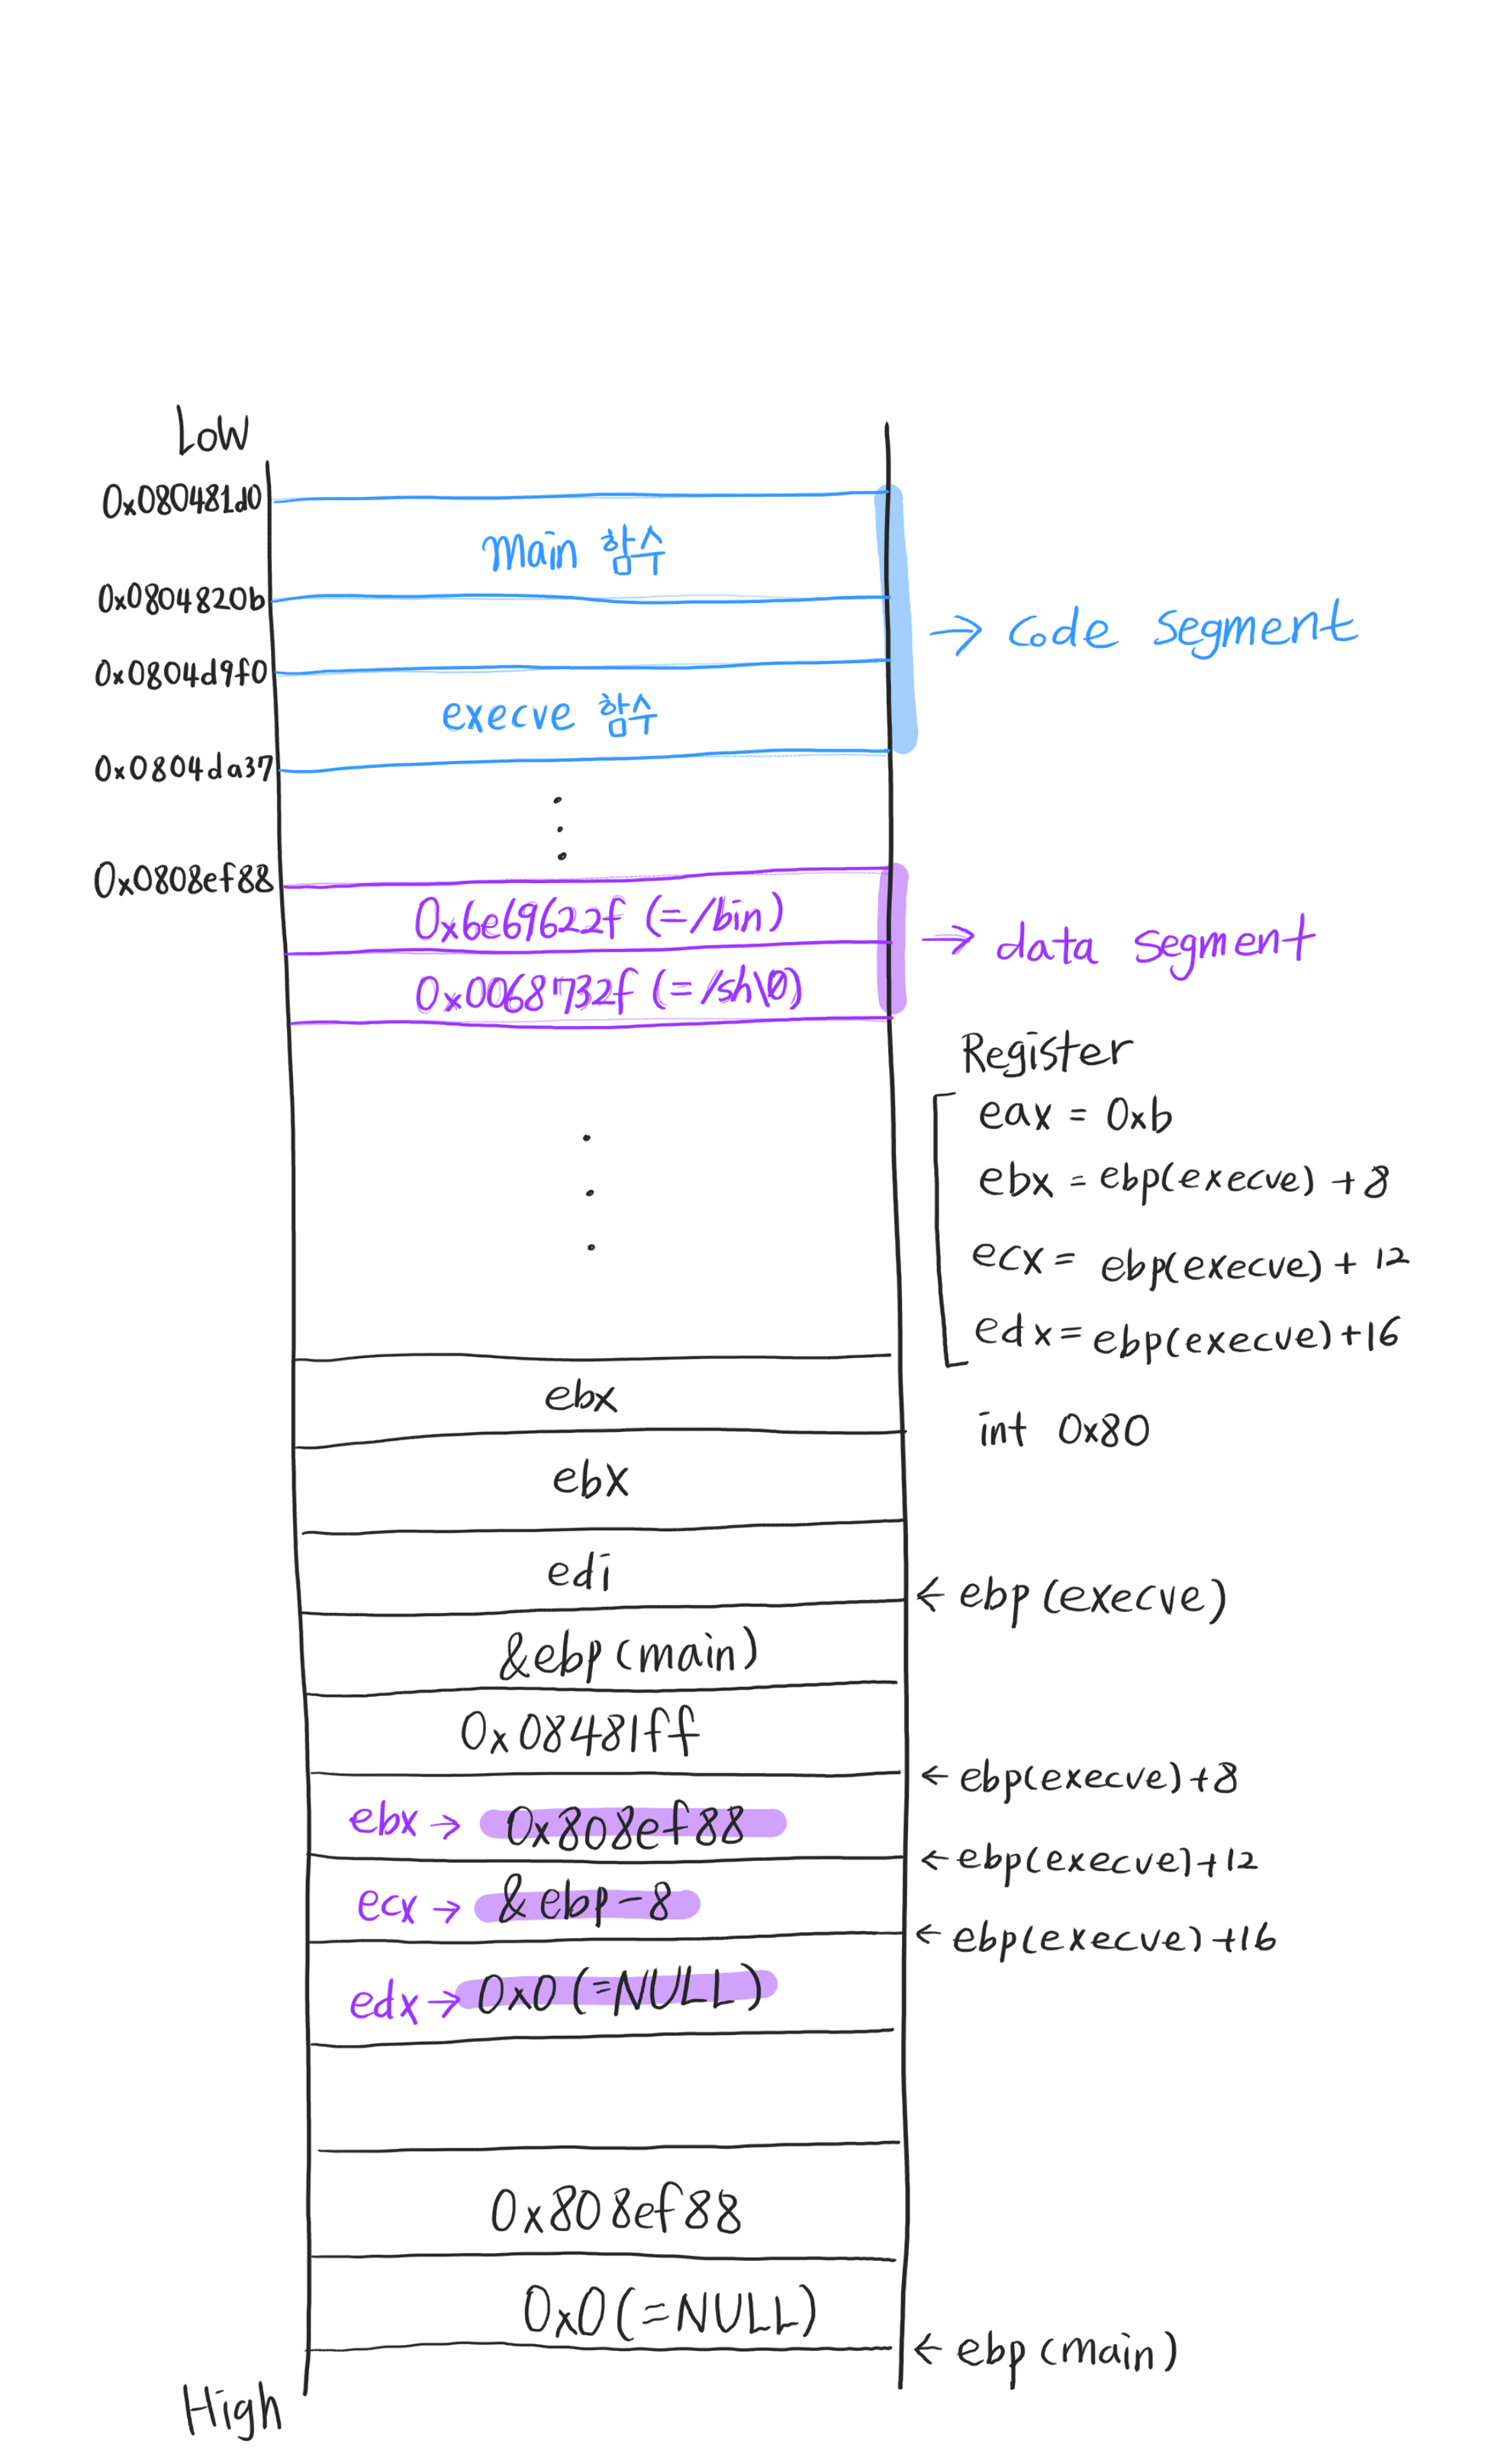 Low
0x080481d0
main 함수
0x0804820b
→ Code Segment
0x0804d9f0
execve 함수
0x0804da37
0x0808ef88
0x6e69622f (=/bin)
→ data segment
0x0068732f (=/sh\0)
Register
eax = 0xb
ebx = ebp(execve) +8
ecx = ebp(execve) + 12
edx = ebp(execve)+16
ebx
int 0x80
ebx
edi
← ebp(execve)
&ebp(main)
0x08481ff
← ebp(execve)+8
ebx → 0x808ef88
← ebp(execve)+12
ecx → &ebp-8
← ebp(execve)+16
edx → 0x0 (=NULL)
0x808ef88
0x0(=NULL)
← ebp(main)
High